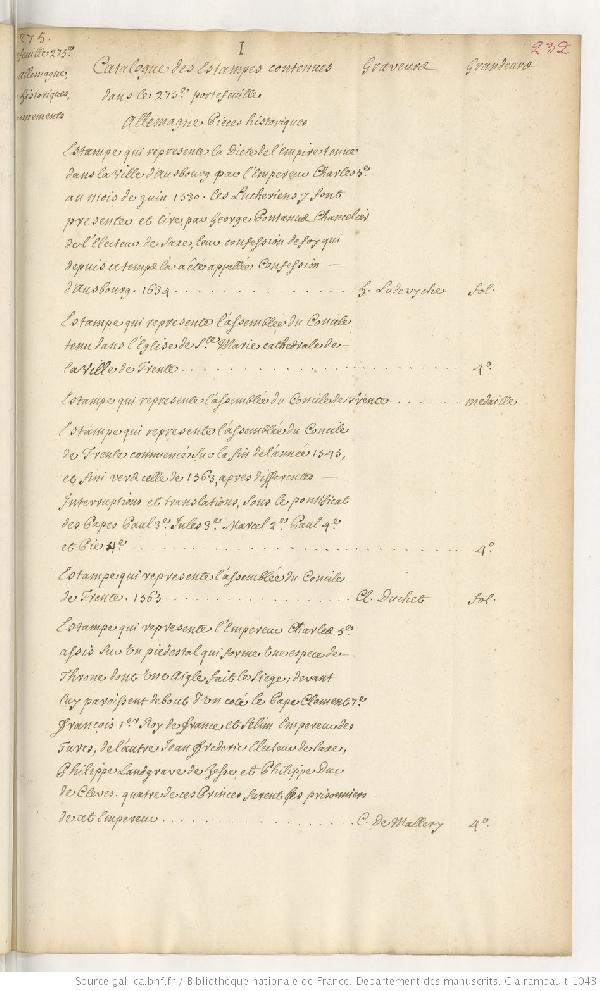 275.
feuille 275e
allemagne,
historiques,
I
232
Catalogue des Estampes contenues Graveurs Grandeurs
dans le 275e portefeuille
Allemagne Pieces historiques
Estampe qui represente la Diete de l'empire tenue
dans la Ville d'Ausbourg par l'Empereur Charles 5e
au mois de juin 1530. les Lutheriens y font
presenter et lire, par George Pontanus Chancelier
de l'Electeur de Saxe, leur confession de foy qui
depuis ce temps là a été appellée Confession —
d'Ausbourg. 1634 . . . . . . . . . . . . . . . . H. Ludovyche fol.
Estampe qui represente l'assemblée du Concile
tenu dans l'Eglise de Ste Marie cathedrale de —
la Ville de Trente . . . . . . . . . . . . . . . . . . . . 4o.
Estampe qui represente l'assemblée du Concile de Trente . . . . . medaille
Estampe qui represente l'assemblée du Concile
de Trente commencée sur la fin de l'année 1545,
et fini vers celle de 1563, apres differentes —
Interruptions et translations, sous le pontificat
des Papes Paul 3e. Jules 3e. Marcel 2e. Paul 4e
et Pie 4e . . . . . . . . . . . . . . . . . . . . . . . . 4o.
Estampe qui represente l'assemblée du Concile
de Trente. 1563 . . . . . . . . . . . . . . Cl. Duchet fol.
Estampe qui represente l'Empereur Charles 5e
assis sur un piedestal qui forme une espece de —
Throne dont une Aigle fait le siege; devant
luy paroissent debout d'un coté le Pape Clement 7e
François 1er Roy de france et Selim Empereur des
Turcs, de l'autre Jean frederic Electeur de Saxe,
Philippe Landgrave de Hesse, et Philippe Duc
de Cleves. quatre de ces Princes furent faits prisonniers
de cet Empereur . . . . . . . . . . . . . . C. de Mallery 4o.
Source gallica.bnf.fr / Bibliothèque nationale de France. Département des manuscrits. Clairambault 1043